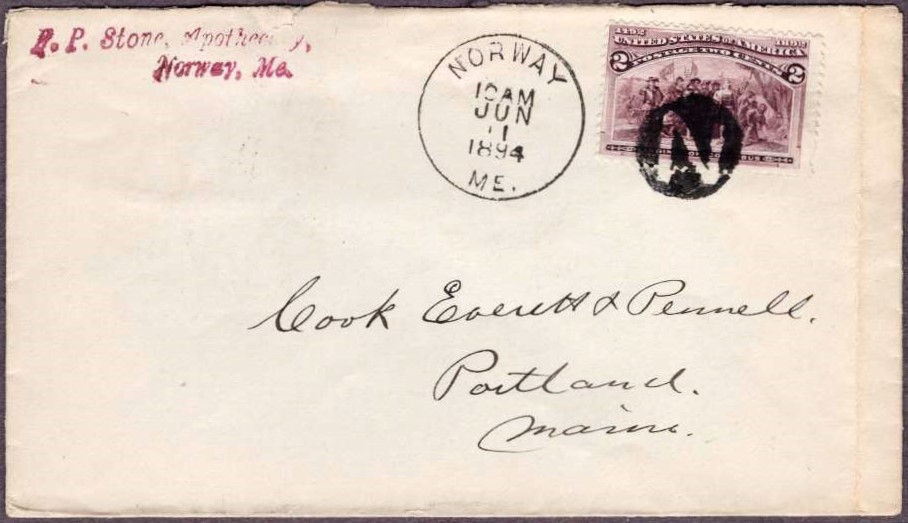 F. P. Stone, Apothecary,
Norway, Me.
NORWAY
10AM
JUN
11
1894
ME.
1492 1892
UNITED STATES OF AMERICA
POSTAGE TWO CENTS
2 2
N
Cook Everett & Pennell.
Portland.
Maine.